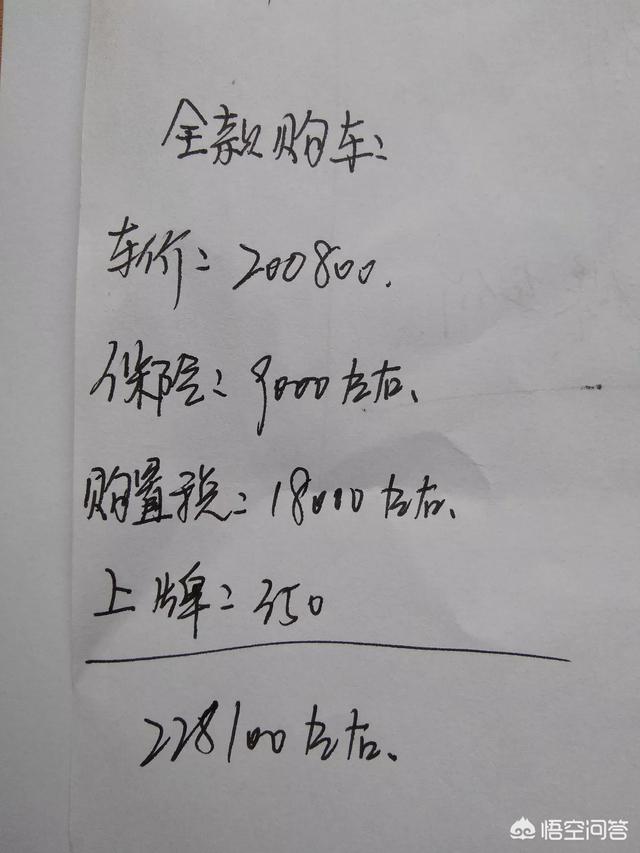 全款购车:
车价:200800.
保险:9000左右、
购置税:18000左右、
上牌:350
228100左右、
悟空问答